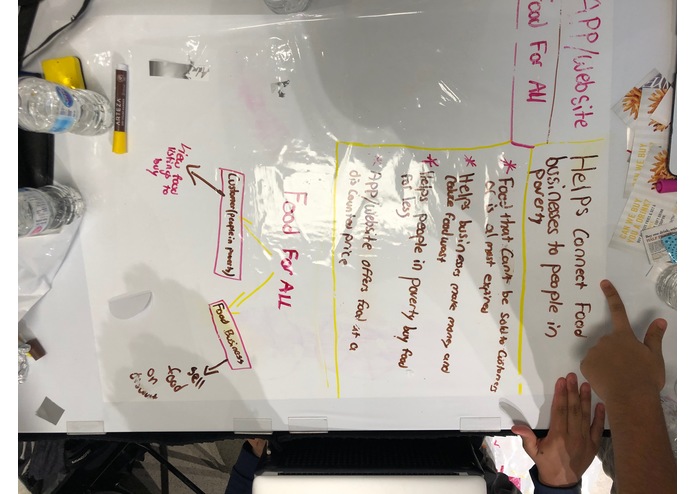 APP/Website
Food For All
Helps Connect Food
businesses to people in
poverty
* Food that Can't be Sold to Customers
or is almost expired
* Helps businesses make money and
reduce food waste
* Helps people in poverty buy food
for less
* App/website offers food at a
discounted price
Food For ALL
Customer (people in poverty)
view food
listings to
buy
Food Business
sell
food
on
discount